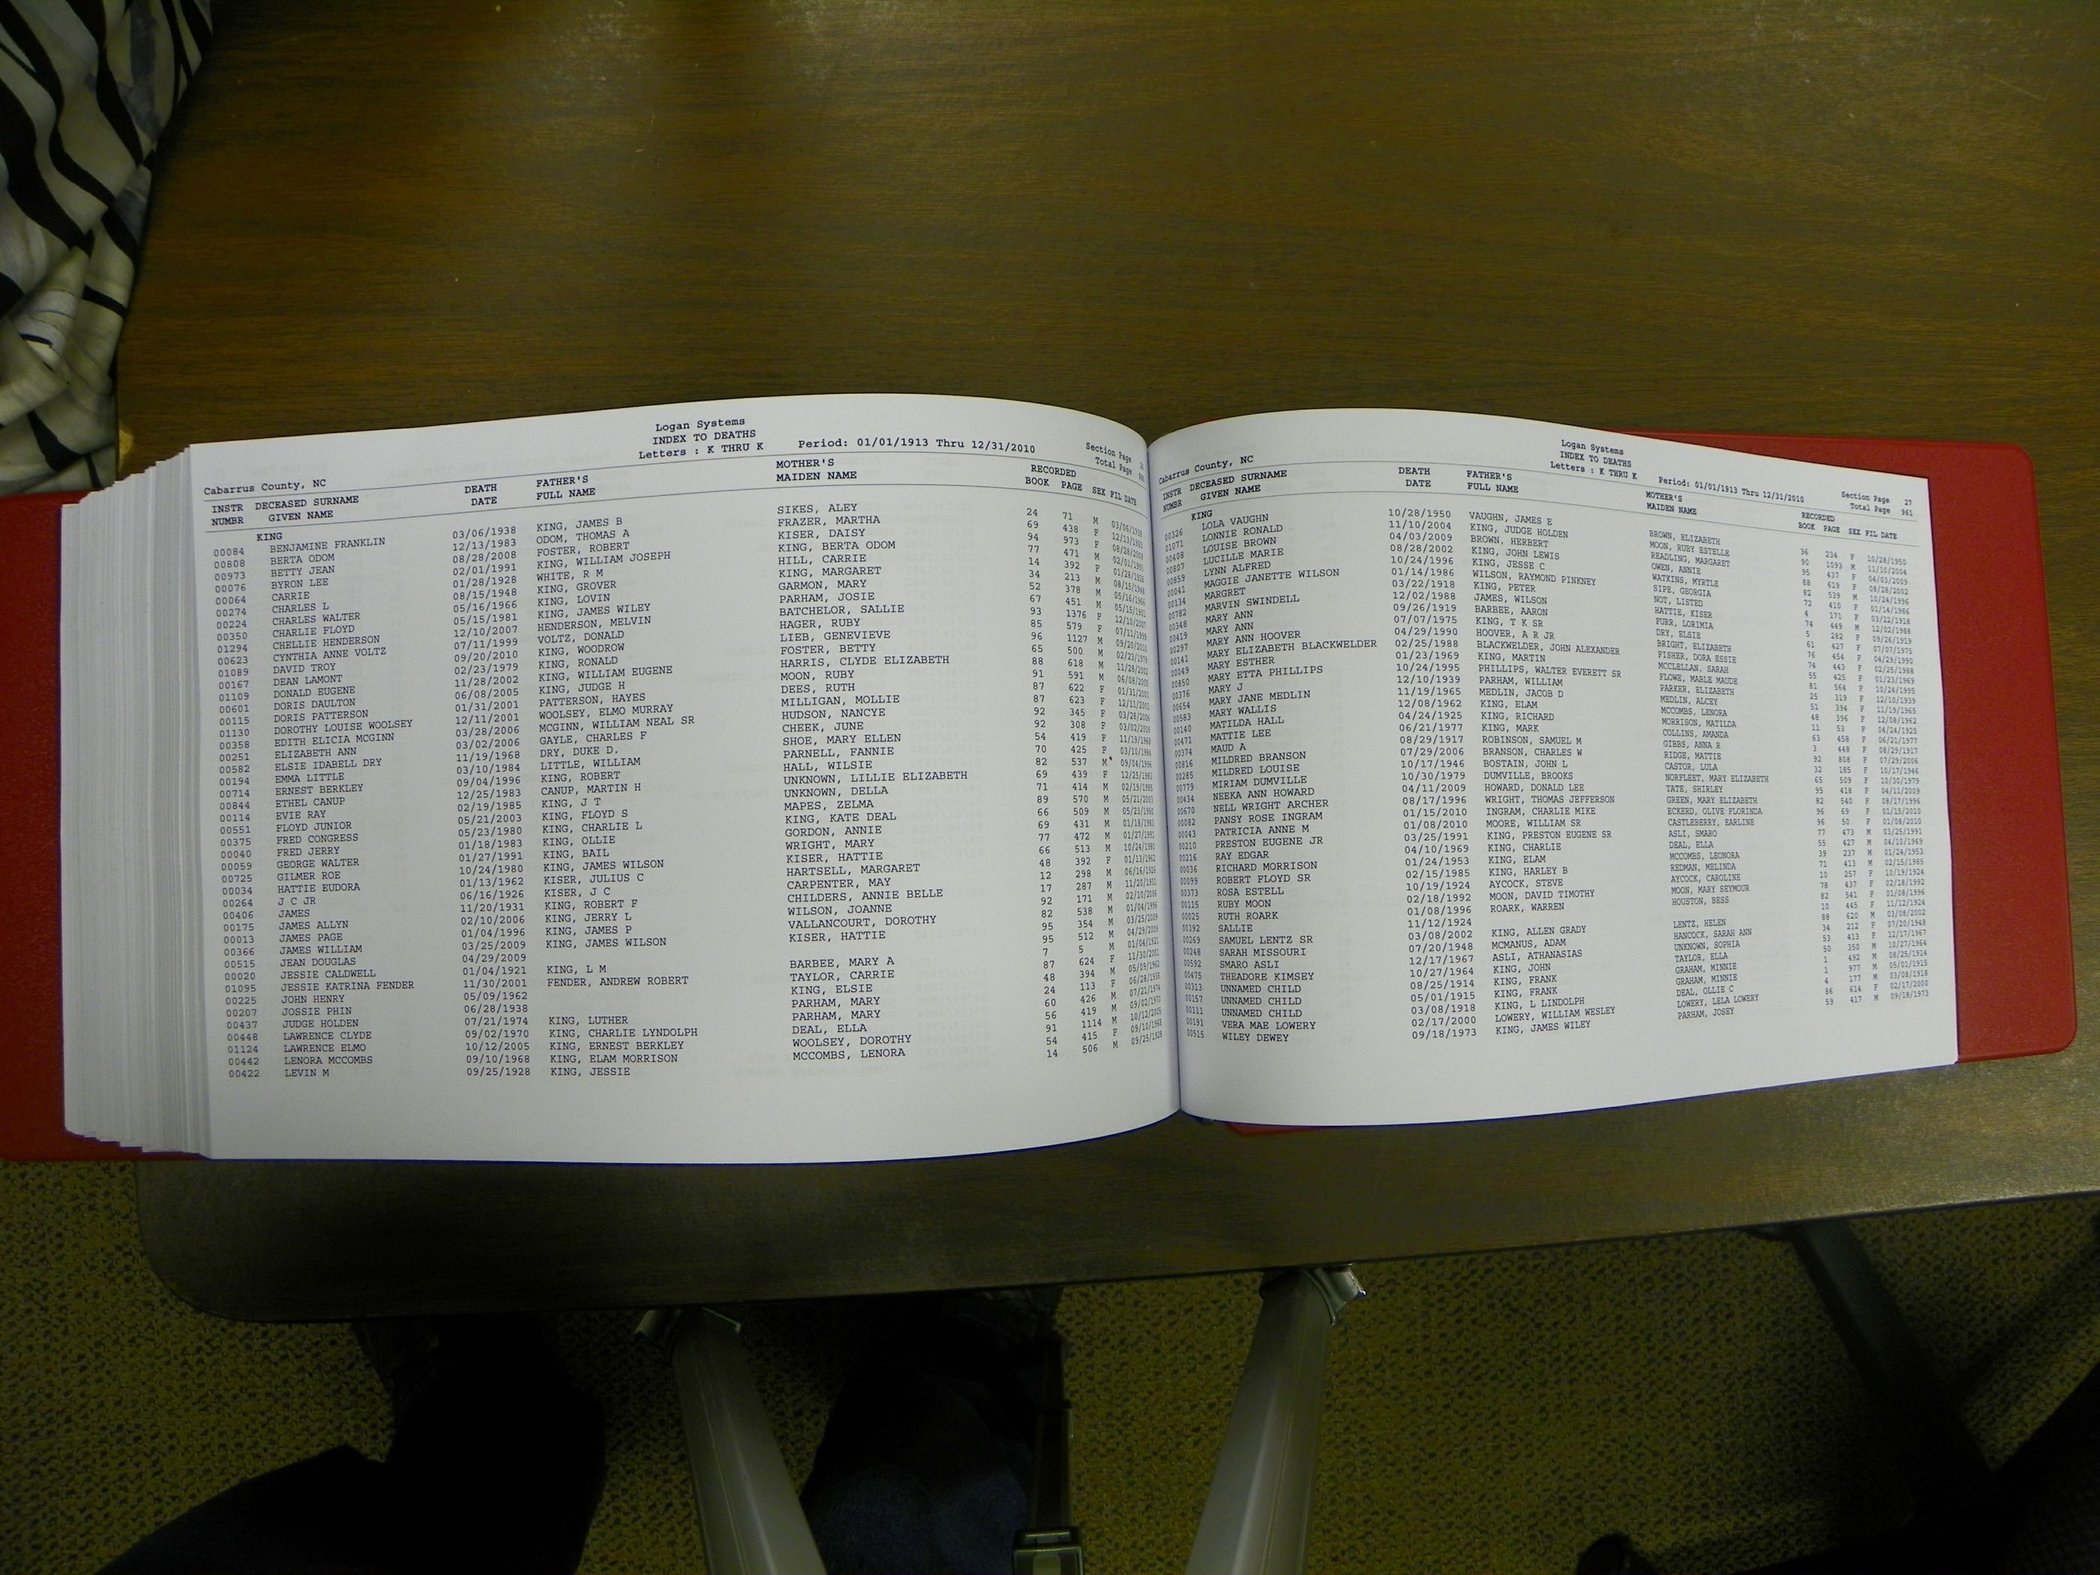 Logan Systems
INDEX TO DEATHS
Cabarrus County, NC Letters : K THRU K Period: 01/01/1913 Thru 12/31/2010 Section Page
Total Page
INSTR DECEASED SURNAME DEATH FATHER'S MOTHER'S RECORDED
NUMBR GIVEN NAME DATE FULL NAME MAIDEN NAME BOOK PAGE SEX FIL DATE
KING
00084 BENJAMINE FRANKLIN 03/06/1938 KING, JAMES B SIKES, ALEY 24 71 M 03/06/1938
00808 BERTA ODOM 12/13/1983 ODOM, THOMAS A FRAZER, MARTHA 69 438 F 12/13/1983
00973 BETTY JEAN 08/28/2008 FOSTER, ROBERT KISER, DAISY 94 973 F 08/28/2008
00076 BYRON LEE 02/01/1991 KING, WILLIAM JOSEPH KING, BERTA ODOM 77 471 M 02/01/1991
00064 CARRIE 01/28/1928 WHITE, R M HILL, CARRIE 14 392 F 01/28/1928
00274 CHARLES L 08/15/1948 KING, GROVER KING, MARGARET 34 213 M 08/15/1948
00224 CHARLES WALTER 05/16/1966 KING, LOVIN GARMON, MARY 52 378 M 05/16/1966
00350 CHARLIE FLOYD 05/15/1981 KING, JAMES WILEY PARHAM, JOSIE 67 451 M 05/15/1981
01294 CHELLIE HENDERSON 12/10/2007 HENDERSON, MELVIN BATCHELOR, SALLIE 93 1376 F 12/10/2007
00623 CYNTHIA ANNE VOLTZ 07/11/1999 VOLTZ, DONALD HAGER, RUBY 85 579 F 07/11/1999
01089 DAVID TROY 09/20/2010 KING, WOODROW LIEB, GENEVIEVE 96 1127 M 09/20/2010
00167 DEAN LAMONT 02/23/1979 KING, RONALD FOSTER, BETTY 65 500 M 02/23/1979
01109 DONALD EUGENE 11/28/2002 KING, WILLIAM EUGENE HARRIS, CLYDE ELIZABETH 88 618 M 11/28/2002
00601 DORIS DAULTON 06/08/2005 KING, JUDGE H MOON, RUBY 91 591 M 06/08/2005
00115 DORIS PATTERSON 01/31/2001 PATTERSON, HAYES DEES, RUTH 87 622 F 01/31/2001
01130 DOROTHY LOUISE WOOLSEY 12/11/2001 WOOLSEY, ELMO MURRAY MILLIGAN, MOLLIE 87 623 F 12/11/2001
00358 EDITH ELICIA MCGINN 03/28/2006 MCGINN, WILLIAM NEAL SR HUDSON, NANCYE 92 345 F 03/28/2006
00251 ELIZABETH ANN 03/02/2006 GAYLE, CHARLES F CHEEK, JUNE 92 308 F 03/02/2006
00582 ELSIE IDABELL DRY 11/19/1968 DRY, DUKE D. SHOE, MARY ELLEN 54 419 F 11/19/1968
00194 EMMA LITTLE 03/10/1984 LITTLE, WILLIAM PARNELL, FANNIE 70 425 F 03/10/1984
00714 ERNEST BERKLEY 09/04/1996 KING, ROBERT HALL, WILSIE 82 537 M 09/04/1996
00844 ETHEL CANUP 12/25/1983 CANUP, MARTIN H UNKNOWN, LILLIE ELIZABETH 69 439 F 12/25/1983
00114 EVIE RAY 02/19/1985 KING, J T UNKNOWN, DELLA 71 414 M 02/19/1985
00551 FLOYD JUNIOR 05/21/2003 KING, FLOYD S MAPES, ZELMA 89 570 M 05/21/2003
00375 FRED CONGRESS 05/23/1980 KING, CHARLIE L KING, KATE DEAL 66 509 M 05/23/1980
00040 FRED JERRY 01/18/1983 KING, OLLIE GORDON, ANNIE 69 431 M 01/18/1983
00059 GEORGE WALTER 01/27/1991 KING, BAIL WRIGHT, MARY 77 472 M 01/27/1991
00725 GILMER ROE 10/24/1980 KING, JAMES WILSON KISER, HATTIE 66 513 M 10/24/1980
00034 HATTIE EUDORA 01/13/1962 KISER, JULIUS C HARTSELL, MARGARET 48 392 F 01/13/1962
00264 J C JR 06/16/1926 KISER, J C CARPENTER, MAY 12 298 M 06/16/1926
00406 JAMES 11/20/1931 KING, ROBERT F CHILDERS, ANNIE BELLE 17 287 M 11/20/1931
00175 JAMES ALLYN 02/10/2006 KING, JERRY L WILSON, JOANNE 92 171 M 02/10/2006
00013 JAMES PAGE 01/04/1996 KING, JAMES P VALLANCOURT, DOROTHY 82 538 M 01/04/1996
00366 JAMES WILLIAM 03/25/2009 KING, JAMES WILSON KISER, HATTIE 95 354 M 03/25/2009
00515 JEAN DOUGLAS 04/29/2009 95 512 M 04/29/2009
00020 JESSIE CALDWELL 01/04/1921 KING, L M BARBEE, MARY A 7 5 M 01/04/1921
01095 JESSIE KATRINA FENDER 11/30/2001 FENDER, ANDREW ROBERT TAYLOR, CARRIE 87 624 F 11/30/2001
00225 JOHN HENRY 05/09/1962 KING, ELSIE 48 394 M 05/09/1962
00207 JOSSIE PHIN 06/28/1938 PARHAM, MARY 24 113 F 06/28/1938
00437 JUDGE HOLDEN 07/21/1974 KING, LUTHER PARHAM, MARY 60 426 M 07/21/1974
00448 LAWRENCE CLYDE 09/02/1970 KING, CHARLIE LYNDOLPH DEAL, ELLA 56 419 M 09/02/1970
01124 LAWRENCE ELMO 10/12/2005 KING, ERNEST BERKLEY WOOLSEY, DOROTHY 91 1114 M 10/12/2005
00442 LENORA MCCOMBS 09/10/1968 KING, ELAM MORRISON MCCOMBS, LENORA 54 415 F 09/10/1968
00422 LEVIN M 09/25/1928 KING, JESSIE 14 506 M 09/25/1928
Logan Systems
INDEX TO DEATHS
Cabarrus County, NC Letters : K THRU K Period: 01/01/1913 Thru 12/31/2010 Section Page 27
Total Page 961
INSTR DECEASED SURNAME DEATH FATHER'S MOTHER'S RECORDED
NUMBR GIVEN NAME DATE FULL NAME MAIDEN NAME BOOK PAGE SEX FIL DATE
KING
00326 LOLA VAUGHN 10/28/1950 VAUGHN, JAMES E BROWN, ELIZABETH 36 234 F 10/28/1950
01071 LONNIE RONALD 11/10/2004 KING, JUDGE HOLDEN MOON, RUBY ESTELLE 90 1093 M 11/10/2004
00408 LOUISE BROWN 04/03/2009 BROWN, HERBERT READLING, MARGARET 95 437 F 04/03/2009
00807 LUCILLE MARIE 08/28/2002 KING, JOHN LEWIS OWEN, ANNIE 88 619 F 08/28/2002
00859 LYNN ALFRED 10/24/1996 KING, JESSE C WATKINS, MYRTLE 82 539 M 10/24/1996
00041 MAGGIE JANETTE WILSON 01/14/1986 WILSON, RAYMOND PINKNEY SIPE, GEORGIA 72 410 F 01/14/1986
00134 MARGRET 03/22/1918 KING, PETER NOT, LISTED 4 171 F 03/22/1918
00782 MARVIN SWINDELL 12/02/1988 JAMES, WILSON HATTIE, KISER 74 449 M 12/02/1988
00348 MARY ANN 09/26/1919 BARBEE, AARON FURR, LORIMIA 5 282 F 09/26/1919
00419 MARY ANN 07/07/1975 KING, T K SR DRY, ELSIE 61 427 F 07/07/1975
00297 MARY ANN HOOVER 04/29/1990 HOOVER, A R JR BRIGHT, ELIZABETH 76 454 F 04/29/1990
00141 MARY ELIZABETH BLACKWELDER 02/25/1988 BLACKWELDER, JOHN ALEXANDER FISHER, DORA ESSIE 74 443 F 02/25/1988
00049 MARY ESTHER 01/23/1969 KING, MARTIN MCCLELLAN, SARAH 55 425 F 01/23/1969
00850 MARY ETTA PHILLIPS 10/24/1995 PHILLIPS, WALTER EVERETT SR FLOWE, MABLE MAUDE 81 564 F 10/24/1995
00376 MARY J 12/10/1939 PARHAM, WILLIAM PARKER, ELIZABETH 25 319 F 12/10/1939
00654 MARY JANE MEDLIN 11/19/1965 MEDLIN, JACOB D MEDLIN, ALCEY 51 394 F 11/19/1965
00583 MARY WALLIS 12/08/1962 KING, ELAM MCCOMBS, LENORA 48 396 F 12/08/1962
00140 MATILDA HALL 04/24/1925 KING, RICHARD MORRISON, MATILDA 11 53 F 04/24/1925
00471 MATTIE LEE 06/21/1977 KING, MARK COLLINS, AMANDA 63 458 F 06/21/1977
00374 MAUD A 08/29/1917 ROBINSON, SAMUEL M GIBBS, ANNA R 3 448 F 08/29/1917
00816 MILDRED BRANSON 07/29/2006 BRANSON, CHARLES W RIDGE, MATTIE 92 808 F 07/29/2006
00285 MILDRED LOUISE 10/17/1946 BOSTAIN, JOHN L CASTOR, LULA 32 185 F 10/17/1946
00779 MIRIAM DUMVILLE 10/30/1979 DUMVILLE, BROOKS NORFLEET, MARY ELIZABETH 65 509 F 10/30/1979
00434 NEEKA ANN HOWARD 04/11/2009 HOWARD, DONALD LEE TATE, SHIRLEY 95 418 F 04/11/2009
00670 NELL WRIGHT ARCHER 08/17/1996 WRIGHT, THOMAS JEFFERSON GREEN, MARY ELIZABETH 82 540 F 08/17/1996
00082 PANSY ROSE INGRAM 01/15/2010 INGRAM, CHARLIE MIKE ECKERD, OLIVE FLORINDA 96 69 F 01/15/2010
00043 PATRICIA ANNE M 01/08/2010 MOORE, WILLIAM SR CASTLEBERRY, EARLINE 96 50 F 01/08/2010
00210 PRESTON EUGENE JR 03/25/1991 KING, PRESTON EUGENE SR ASLI, SMARO 77 473 M 03/25/1991
00216 RAY EDGAR 04/10/1969 KING, CHARLIE DEAL, ELLA 55 427 M 04/10/1969
00036 RICHARD MORRISON 01/24/1953 KING, ELAM MCCOMBS, LEONORA 39 237 M 01/24/1953
00099 ROBERT FLOYD SR 02/15/1985 KING, HARLEY B REDMAN, MELINDA 71 413 M 02/15/1985
00373 ROSA ESTELL 10/19/1924 AYCOCK, STEVE AYCOCK, CAROLINE 10 257 F 10/19/1924
00115 RUBY MOON 02/18/1992 MOON, DAVID TIMOTHY MOON, MARY SEYMOUR 78 437 F 02/18/1992
00025 RUTH ROARK 01/08/1996 ROARK, WARREN HOUSTON, BESS 82 541 F 01/08/1996
00392 SALLIE 11/12/1924 10 445 F 11/12/1924
00269 SAMUEL LENTZ SR 03/08/2002 KING, ALLEN GRADY LENTZ, HELEN 88 620 M 03/08/2002
00248 SARAH MISSOURI 07/20/1948 MCMANUS, ADAM HANCOCK, SARAH ANN 34 212 F 07/20/1948
00592 SMARO ASLI 12/17/1967 ASLI, ATHANASIAS UNKNOWN, SOPHIA 53 413 F 12/17/1967
00475 THEADORE KIMSEY 10/27/1964 KING, JOHN TAYLOR, ELLA 50 350 M 10/27/1964
00313 UNNAMED CHILD 08/25/1914 KING, FRANK GRAHAM, MINNIE 1 492 M 08/25/1914
00157 UNNAMED CHILD 05/01/1915 KING, FRANK GRAHAM, MINNIE 1 977 M 05/01/1915
00111 UNNAMED CHILD 03/08/1918 KING, L LINDOLPH DEAL, OLLIE C 4 177 M 03/08/1918
00191 VERA MAE LOWERY 02/17/2000 LOWERY, WILLIAM WESLEY LOWERY, LELA LOWERY 86 614 F 02/17/2000
00515 WILEY DEWEY 09/18/1973 KING, JAMES WILEY PARHAM, JOSEY 59 417 M 09/18/1973